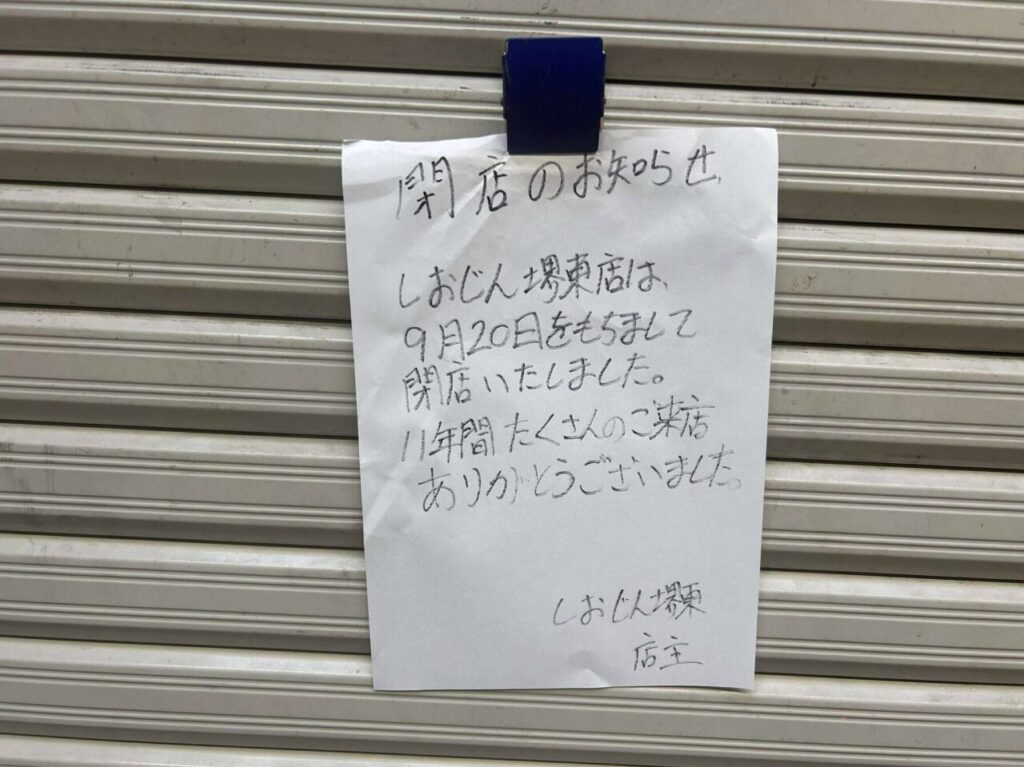 閉店のお知らせ
しおじん堺東店は、
9月20日をもちまして
閉店いたしました。
11年間たくさんのご来店
ありがとうございました。
しおじん堺東
店主